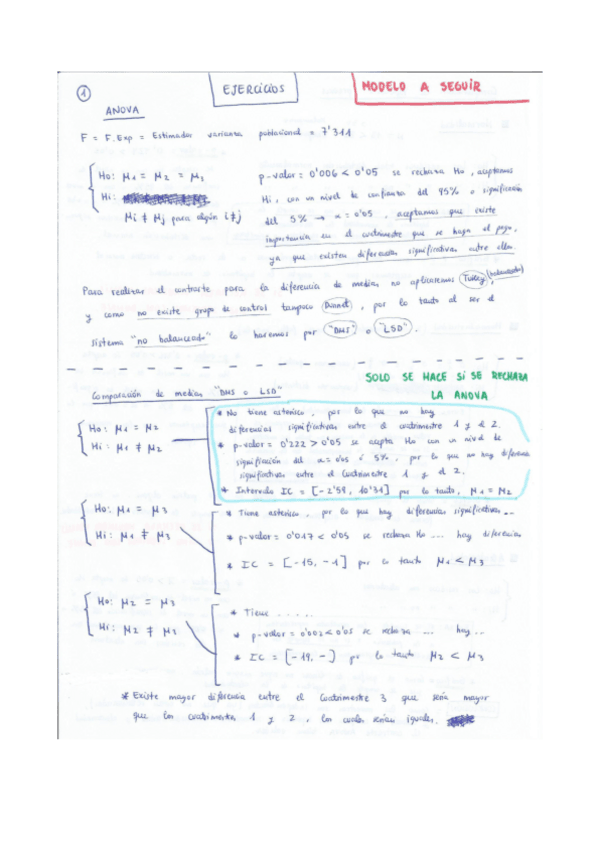 1
EJERCICIOS
MODELO A SEGUIR
ANOVA
F = F. Exp = Estimador varianza poblacional = 7'311
Ho: μ1 = μ2 = μ3
Hi:
μi ≠ μj para algún i≠j
p-valor = 0'006 < 0'05 se rechaza Ho, aceptamos
Hi, con un nivel de confianza del 95% o significación
del 5% → α = 0'05, aceptamos que existe
importancia en el cuatrimestre que se haga el pago,
ya que existen diferencias significativas entre ellos.
Para realizar el contraste para la diferencia de medias no aplicaremos Tukey (balanceado)
y como no existe grupo de control tampoco Dunnet, por lo tanto al ser el
sistema "no balanceado" lo haremos por "DMS" o "LSD".
SOLO SE HACE SI SE RECHAZA
LA ANOVA
Comparación de medias "DMS o LSD"
Ho: μ1 = μ2
Hi: μ1 ≠ μ2
* No tiene asterisco, por lo que no hay
diferencias significativas entre el cuatrimestre 1 y el 2.
* p-valor = 0'222 > 0'05 se acepta Ho con un nivel de
significación del α = 0'05 ó 5%, por lo que no hay diferencia
significativas entre el Cuatrimestre 1 y el 2.
* Intervalo IC = [-2'59, 10'31] por lo tanto, μ1 = μ2
Ho: μ1 = μ3
Hi: μ1 ≠ μ3
* Tiene asterisco, por lo que hay diferencias significativas...
* p-valor = 0'017 < 0'05 se rechaza Ho ... hay diferencias
* IC = [-15, -1] por lo tanto μ1 < μ3
Ho: μ2 = μ3
Hi: μ2 ≠ μ3
* Tiene .....
* p-valor = 0'002 < 0'05 se rechaza ... hay ..
* IC = [-19, -] por lo tanto μ2 < μ3
* Existe mayor diferencia entre el Cuatrimestre 3 que sería mayor
que los cuatrimestre 1 y 2, los cuales serían iguales.